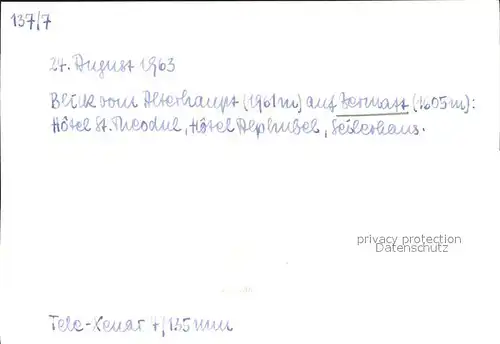 137/7
27. August 1963
Blick vom Alterhaupt (1961m) auf Zermatt (1605m):
Hôtel St. Theodul, Hôtel Alphubel, Seilerhaus.
privacy protection
Datenschutz
Tele-Xenar 4/135mm